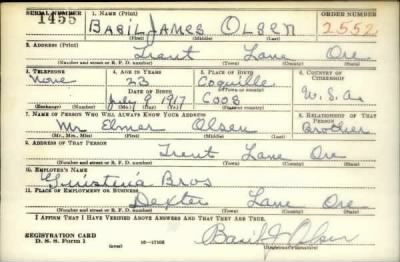 SERIAL NUMBER 1. NAME (Print) ORDER NUMBER
1455 BASIL JAMES OLSEN 2552
(First) (Middle) (Last)
2. ADDRESS (Print)
Trent Lane Ore
(Number and street or R. F. D. number) (Town) (County) (State)
3. TELEPHONE 4. AGE IN YEARS 5. PLACE OF BIRTH 6. COUNTRY OF CITIZENSHIP
None 23 Coquille
DATE OF BIRTH (Town or county)
July 8, 1917 Coos U.S.A.
(Exchange) (Number) (Mo.) (Day) (Yr.) (State or country)
7. NAME OF PERSON WHO WILL ALWAYS KNOW YOUR ADDRESS 8. RELATIONSHIP OF THAT PERSON
Mr Elmer Olsen Brother
(Mr., Mrs., Miss) (First) (Middle) (Last)
9. ADDRESS OF THAT PERSON
Trent Lane Ore
(Number and street or R. F. D. number) (Town) (County) (State)
10. EMPLOYER'S NAME
Giustina Bros
11. PLACE OF EMPLOYMENT OR BUSINESS
Dexter Lane Ore
(Number and street or R. F. D. number) (Town) (County) (State)
I AFFIRM THAT I HAVE VERIFIED ABOVE ANSWERS AND THAT THEY ARE TRUE.
REGISTRATION CARD
D. S. S. Form 1 Basil J Olsen
(over) (Registrant's signature)